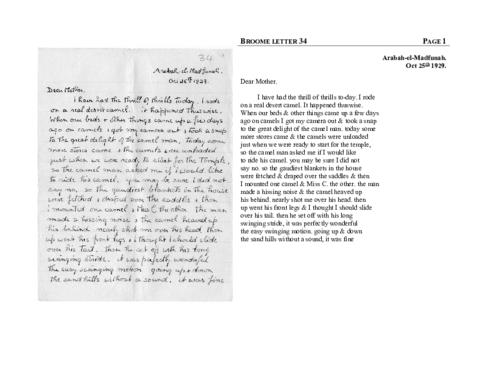 34
Arabah-el-Madfunah.
Oct 25th 1929.
Dear Mother.
I have had the thrill of thrills today. I rode
on a real desert camel. it happened thuswise.
When our beds & other things came up a few days
ago on camels I got my camera out & took a snap
to the great delight of the camel man. Today some
more stores came & the camels were unloaded
just when we were ready to start for the temple,
so the camel man asked me if I would like
to ride his camel. you may be sure I did not
say no. so the gaudiest blankets in the house
were fetched & draped over the saddles & then
I mounted one camel & Miss C. the other. the man
made a hissing noise & the camel heaved up
his behind. nearly shot me over his head. then
up went his front legs & I thought I should slide
over his tail. then he set off with his long
swinging stride. it was perfectly wonderful
the easy swinging motion. going up & down
the sand hills without a sound. it was fine
BROOME LETTER 34 PAGE 1
Arabah-el-Madfunah.
Oct 25th 1929.
Dear Mother.
I have had the thrill of thrills to-day. I rode
on a real desert camel. It happened thuswise.
When our beds & other things came up a few days
ago on camels I got my camera out & took a snap
to the great delight of the camel man. today some
more stores came & the camels were unloaded
just when we were ready to start for the temple,
so the camel man asked me if I would like
to ride his camel. you may be sure I did not
say no. so the gaudiest blankets in the house
were fetched & draped over the saddles & then
I mounted one camel & Miss C. the other. the man
made a hissing noise & the camel heaved up
his behind. nearly shot me over his head. then
up went his front legs & I thought I should slide
over his tail. then he set off with his long
swinging stride, it was perfectly wonderful
the easy swinging motion. going up & down
the sand hills without a sound, it was fine